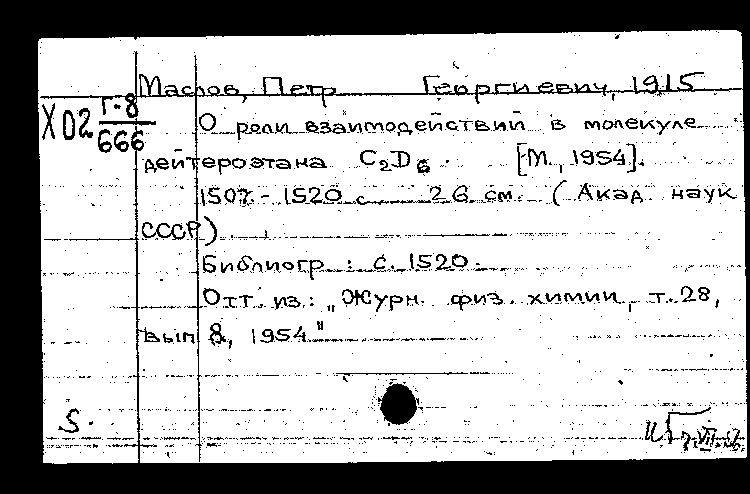 Маслов, Петр Георгиевич, 1915
Х02 Г-8/666
О роли взаимодействий в молекуле
дейтероэтана C₂D₆. [М., 1954].
1507-1520 с. 26 см. (Акад. наук
СССР)
Библиогр.: с. 1520.
Отт. из: „Журн. физ. химии, т. 28,
вып 8, 1954"
S.